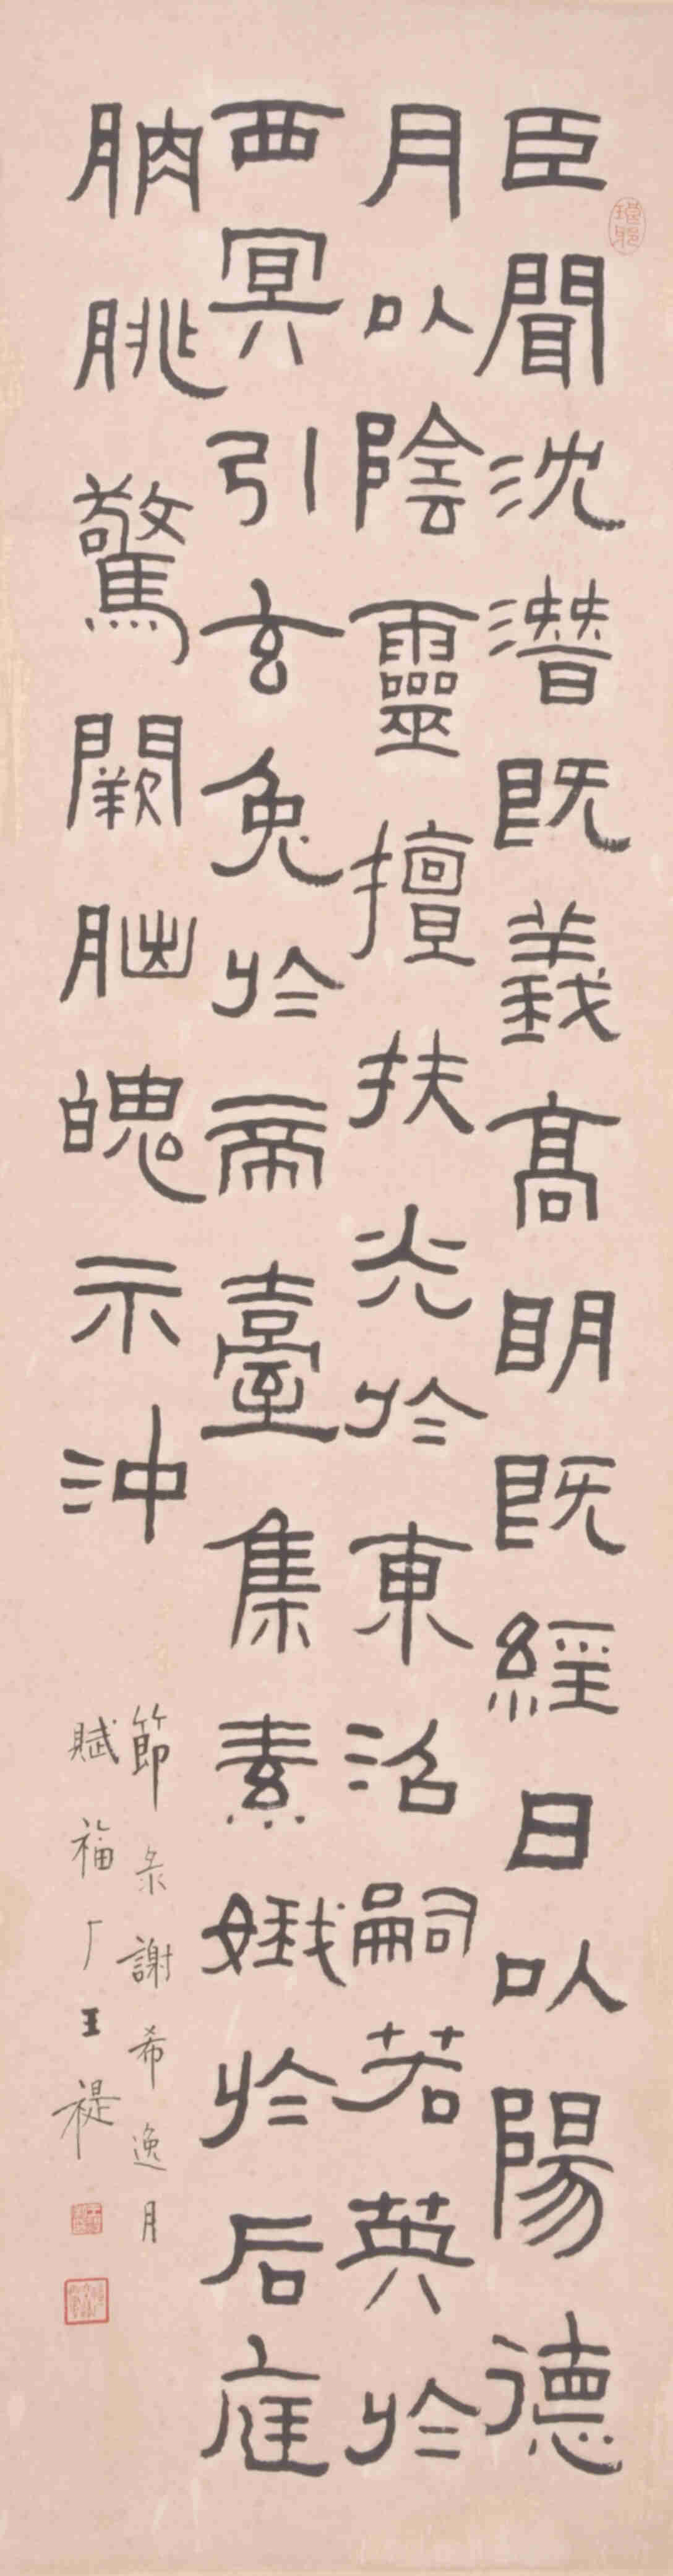 臣聞沈潛既義高明既經日以陽德
月以陰靈擅扶光於東沼嗣若英於
西冥引玄兔於帝臺集素娥於后庭
朒朓驚闕朏魄示沖
節录謝希逸月
賦福厂王禔